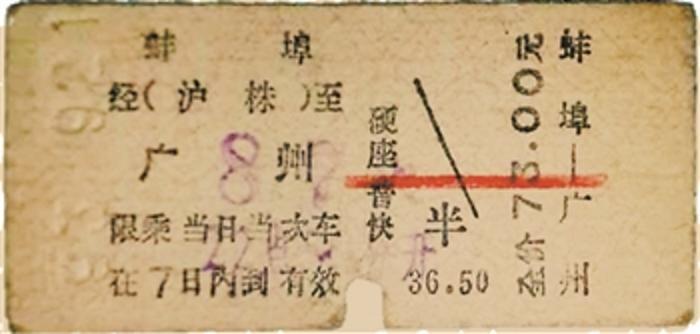 蚌埠
经(沪株)至
广州
限乘当日当次车
在7日内到有效
硬座普快
半
36.50
全价73.00元
蚌埠—广州